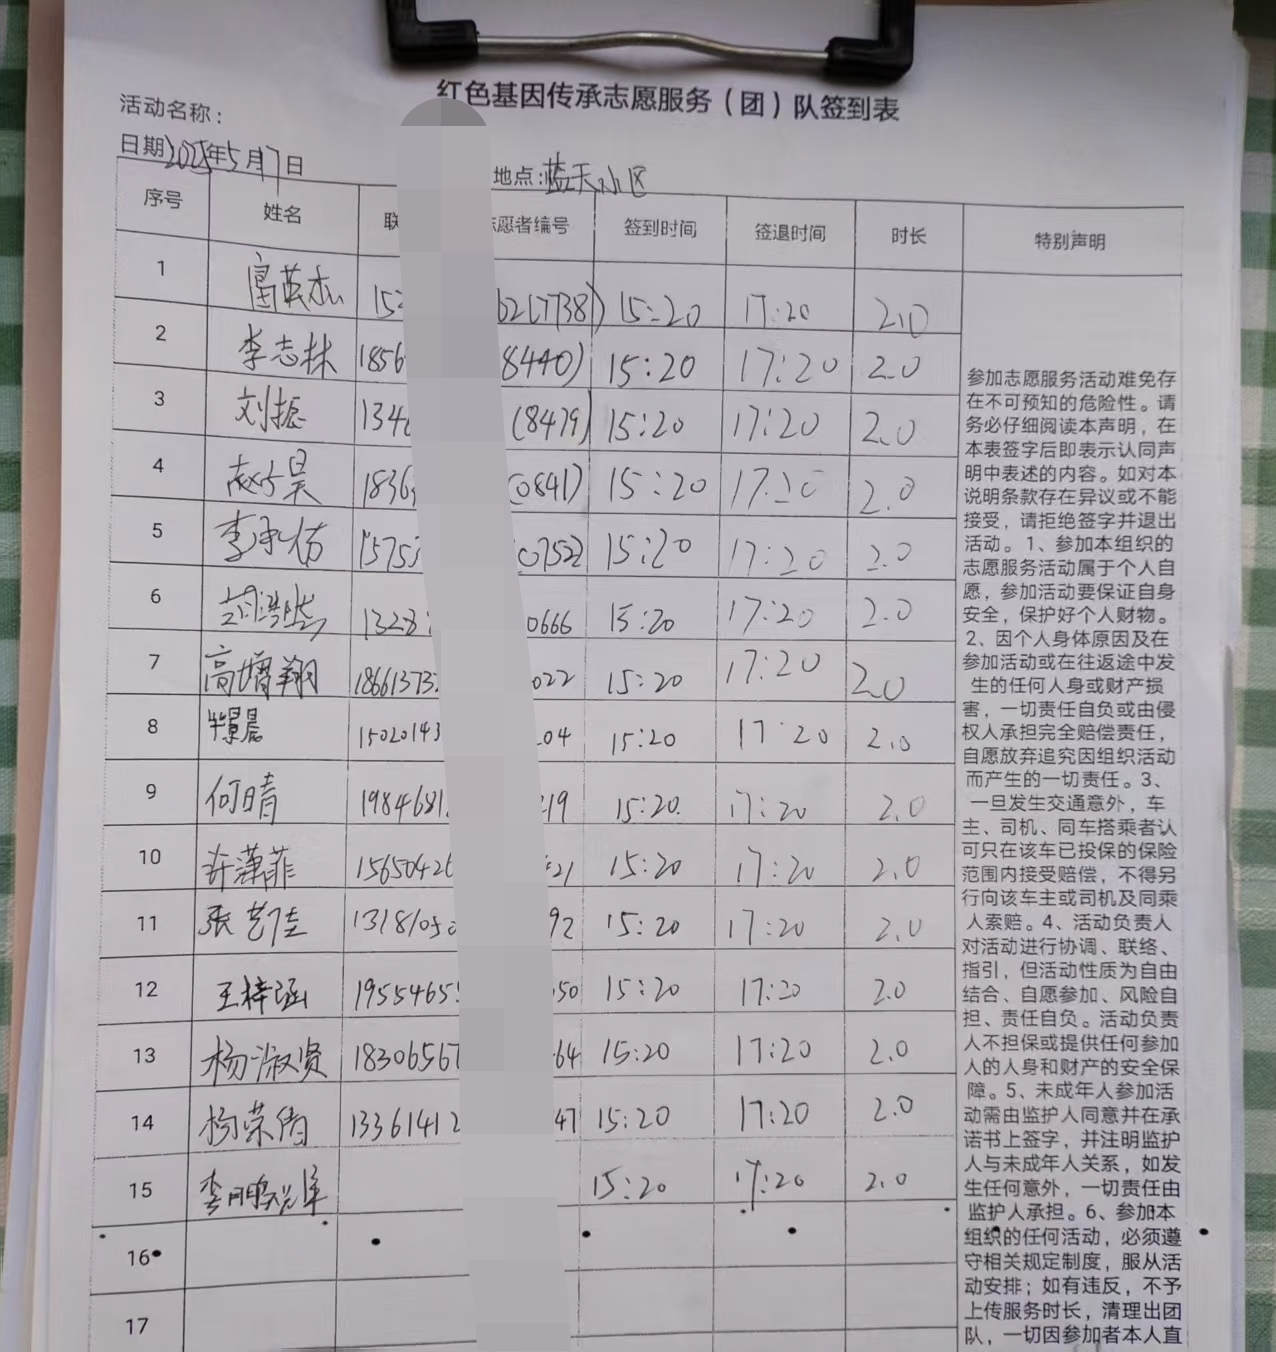 红色基因传承志愿服务（团）队签到表
活动名称：
日期2025年5月17日
地点:蓝天小区
序号 姓名 联 志愿者编号 签到时间 签退时间 时长 特别声明
1 15:20 17:20 2.0
2 李志林 1856 8440) 15:20 17:20 2.0
3 刘振 134 (8479) 15:20 17:20 2.0
4 1836 (0841) 15:20 17:20 2.0
5 15753 07522 15:20 17:20 2.0
6 1328 0666 15:20 17:20 2.0
7 18661373 022 15:20 17:20 2.0
8 15020143 204 15:20 17:20 2.0
9 何晴 1984681 19 15:20 17:20 2.0
10 许潇菲 15650426 21 15:20 17:20 2.0
11 张艺佳 13181050 92 15:20 17:20 2.0
12 王梓涵 19554655 50 15:20 17:20 2.0
13 杨淑贤 18306567 64 15:20 17:20 2.0
14 杨荣倩 13361412 47 15:20 17:20 2.0
15 15:20 17:20 2.0
16
17
参加志愿服务活动难免存
在不可预知的危险性。请
务必仔细阅读本声明，在
本表签字后即表示认同声
明中表述的内容。如对本
说明条款存在异议或不能
接受，请拒绝签字并退出
活动。1、参加本组织的
志愿服务活动属于个人自
愿，参加活动要保证自身
安全，保护好个人财物。
2、因个人身体原因及在
参加活动或在往返途中发
生的任何人身或财产损
害，一切责任自负或由侵
权人承担完全赔偿责任，
自愿放弃追究因组织活动
而产生的一切责任。3、
一旦发生交通意外，车
主、司机、同车搭乘者认
可只在该车已投保的保险
范围内接受赔偿，不得另
行向该车主或司机及同乘
人索赔。4、活动负责人
对活动进行协调、联络、
指引，但活动性质为自由
结合、自愿参加、风险自
担、责任自负。活动负责
人不担保或提供任何参加
人的人身和财产的安全保
障。5、未成年人参加活
动需由监护人同意并在承
诺书上签字，并注明监护
人与未成年人关系，如发
生任何意外，一切责任由
监护人承担。6、参加本
组织的任何活动，必须遵
守相关规定制度，服从活
动安排；如有违反，不予
上传服务时长，清理出团
队，一切因参加者本人直